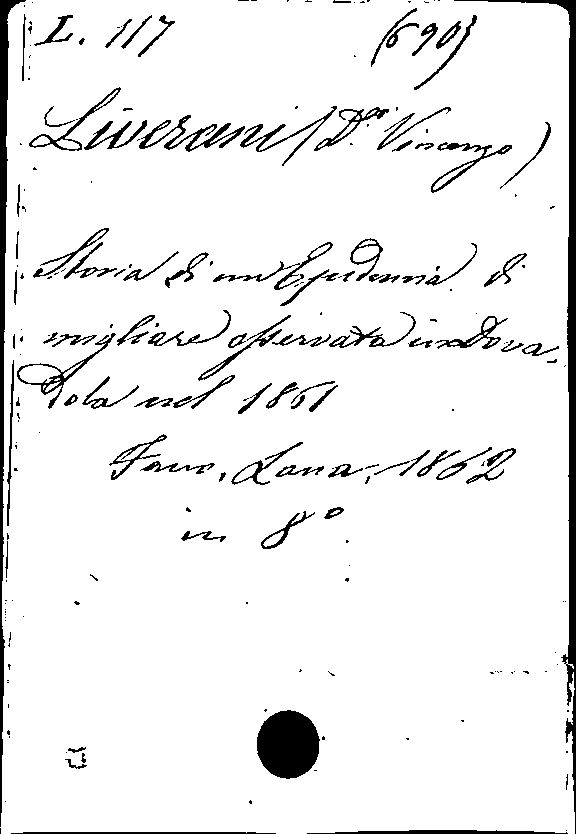 L. 117 (690)
Liverani (Dr. Vincenzo)
Storia di un Epidemia di
migliare osservata in Dova-
dola nel 1861
Fano, Lana, 1862
in 8°